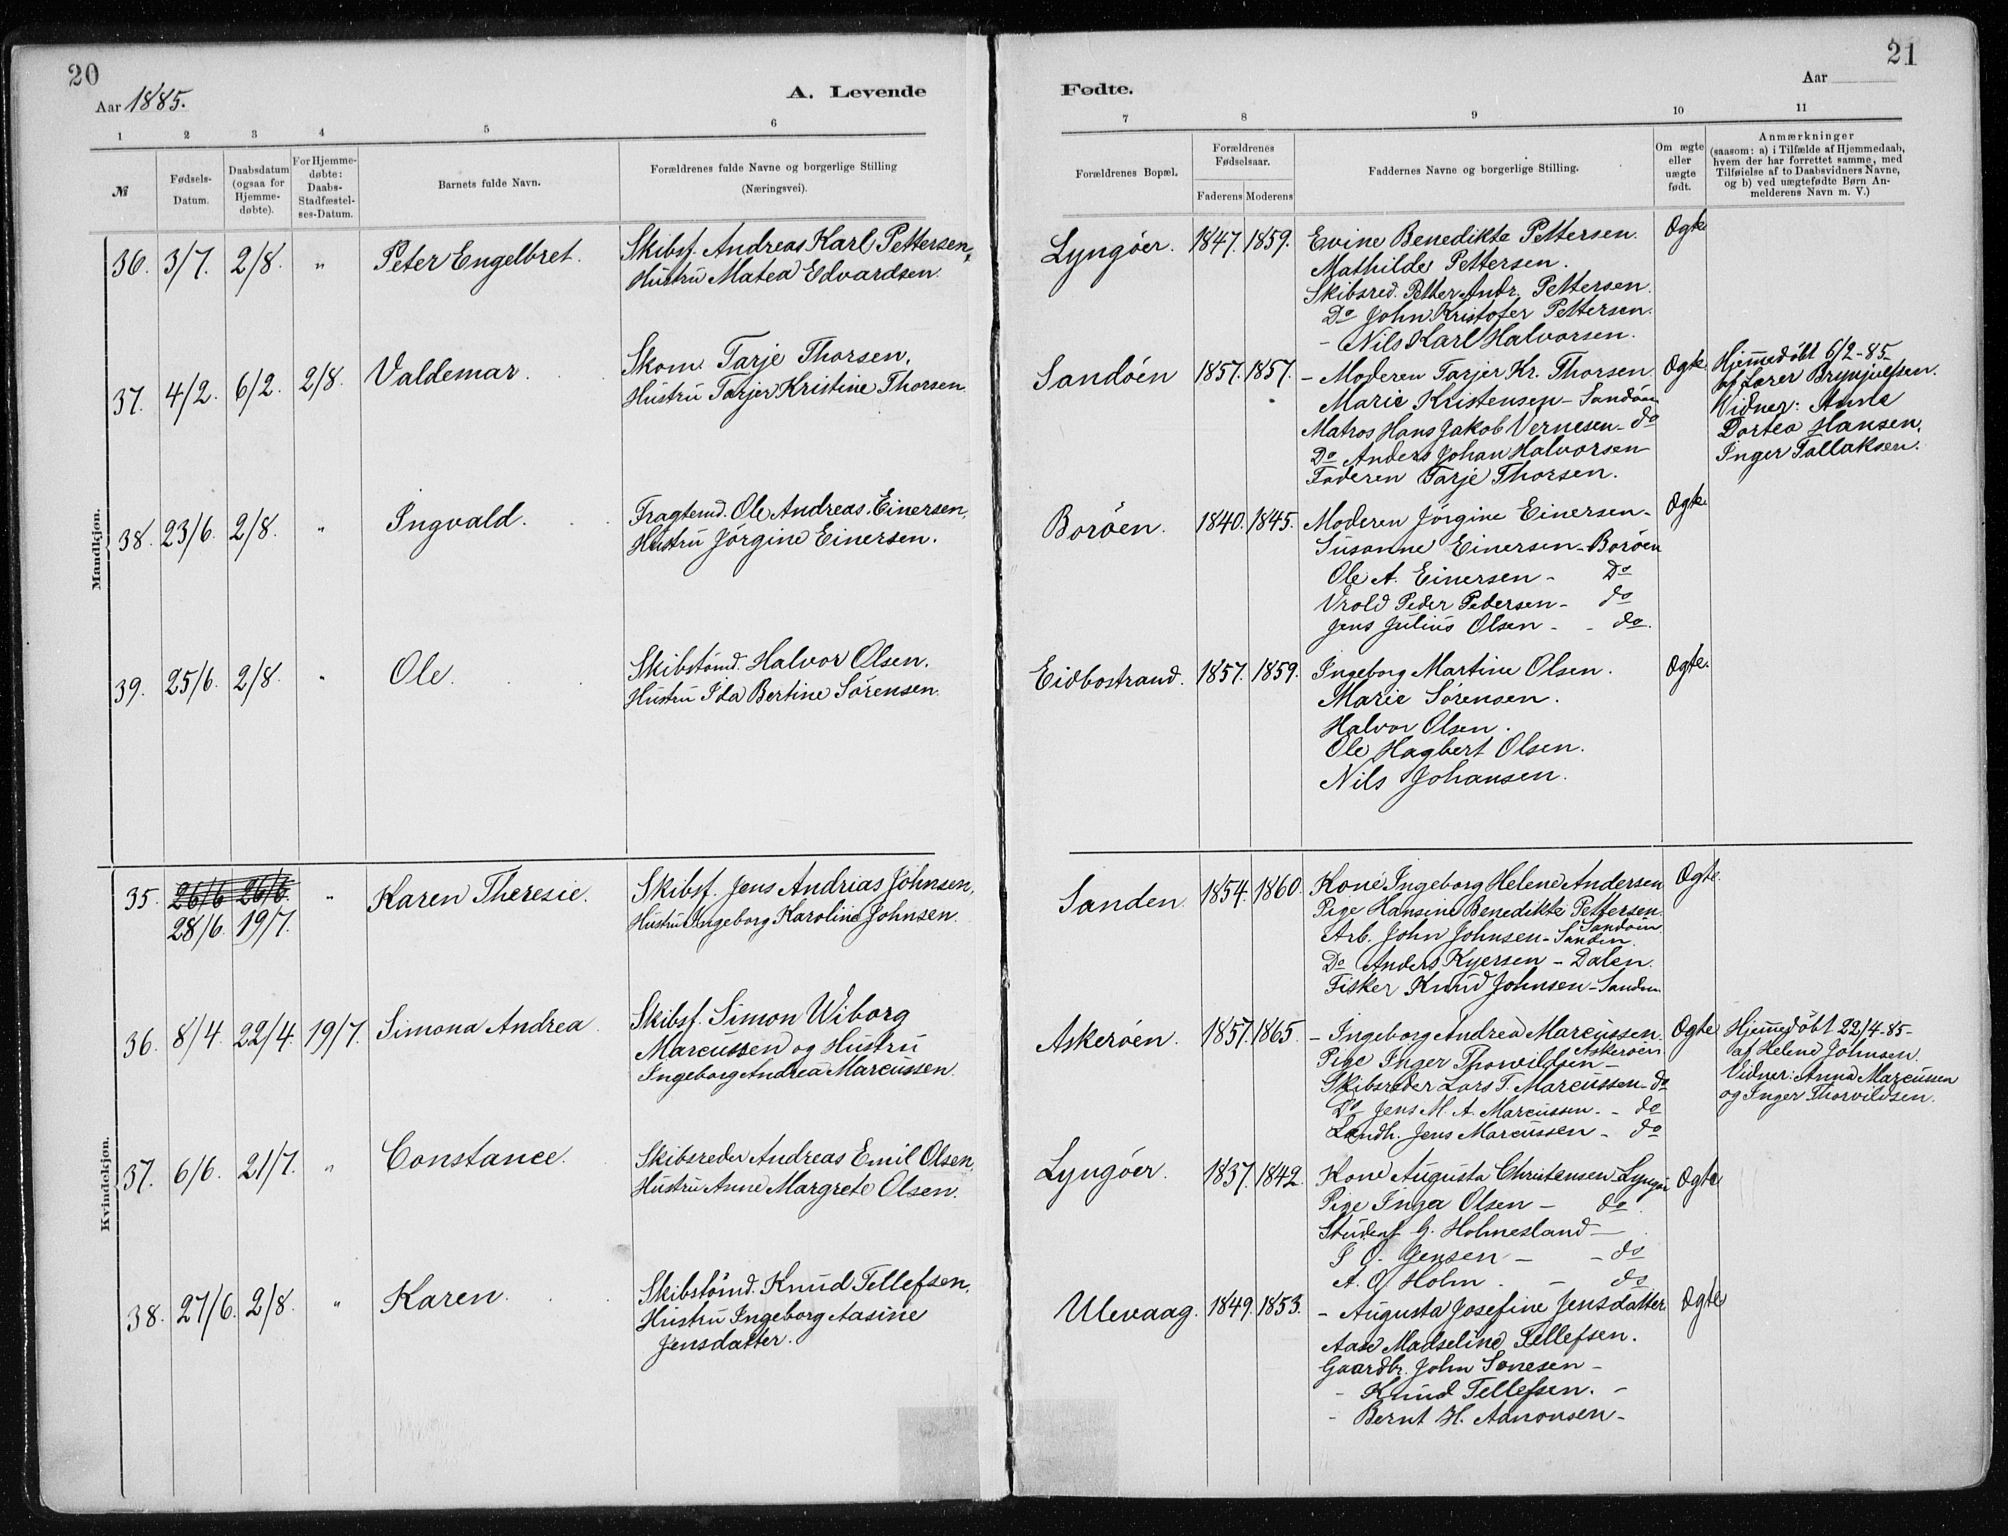 20
Aar 1885.
A. Levende
1 2 3 4 5 6
№
Fødsels-
Datum.
Daabsdatum
(ogsaa for
Hjemme-
døbte).
For Hjemme-
døbte:
Daabs-
Stadfæstel-
ses-Datum.
Barnets fulde Navn.
Forældrenes fulde Navne og borgerlige Stilling
(Næringsvei).
Mandkjøn.
36. 3/7. 2/8. " Peter Engelbret.
Skibsf. Andreas Karl Pettersen,
Hustru Matea Edvardsen.
37. 4/2. 6/2. 2/8. Valdemar.
Skom. Tarje Thorsen.
Hustru Tarjer Kristine Thorsen.
38. 23/6. 2/8. " Ingvald.
Fragtemd. Ole Andreas Einersen,
Hustru Jørgine Einersen.
39. 25/6. 2/8. " Ole.
Skibstømd. Halvor Olsen.
Hustru Ida Bertine Sørensen.
Kvindekjøn.
35. 26/6 26/6. " Karen Theresie.
28/6. 19/7.
Skibsf. Jens Andrias Johnsen,
Hustru Ingeborg Karoline Johnsen.
36. 8/4. 22/4. 19/7. Simona Andrea.
Skibsf. Simon Wiborg
Marcussen og Hustru
Ingeborg Andrea Marcussen.
37. 6/6. 21/7. " Constance.
Skibsreder Andreas Emil Olsen,
Hustru Anne Margrete Olsen.
38. 27/6. 2/8. " Karen.
Skibstømd. Knud Tellefsen,
Hustru Ingeborg Aasine
Jensdatter.
21
Aar
Fødte.
7 8 9 10 11
Forældrenes Bopæl.
Forældrenes
Fødselsaar.
Faderens Moderens
Faddernes Navne og borgerlige Stilling.
Om ægte
eller
uægte
født.
Anmærkninger
(saasom: a) i Tilfælde af Hjemmedaab,
hvem der har forrettet samme, med
Tilføielse af to Daabsvidners Navne,
og b) ved uægtefødte Børn An-
melderens Navn m. V.)
Lyngøer. 1847. 1859. Evine Benedikte Pettersen. Ægte
Mathilde Pettersen.
Skibsred. Petter Andr. Pettersen.
Do John Kristofer Pettersen.
- Nils Karl Halvorsen.
Sandøen 1857. 1857. - Moderen Tarjer Kr. Thorsen. Ægte.
Marie Kristensen - Sandøen
Matros Hans Jakob Vernesen - do
Do Anders Johan Halvorsen
Faderen Tarje Thorsen.
Hjemedøbt 6/2-85
af Lærer Brynjulfsen.
Vidner: Anne
Dortea Hansen,
Inger Tallaksen.
Borøen. 1840. 1845. Moderen Jørgine Einersen - Ægte.
Susanne Einersen - Borøen
Ole A. Einersen - Do
Vrold Peder Pedersen - do
Jens Julius Olsen - - do.
Eidbostrand. 1857. 1859. Ingeborg Martine Olsen. Ægte.
Marie Sørensen.
Halvor Olsen.
Ole Hagbert Olsen.
Nils Johansen.
Sanden. 1854. 1860. Kone Ingeborg Helene Andersen Ægte.
Pige Hansine Benedikte Pettersen.
Sandøen.
Arb. John Johnsen - Sanden.
Do Anders Kyersen - Dalen.
Fisker Knud Johnsen - Sanden
Askerøen. 1857. 1865. - Ingeborg Andrea Marcussen. Ægte
Askerøen
Pige Inger Thorvildsen -
Skibsreder Lars T. Marcussen - do
Do Jens M. A. Marcussen. - do
Landh. Jens Marcussen - do
Hjemedøbt 22/4-85-
af Helene Johnsen.
Vidner: Anna Marcussen
og Inger Thorvildsen.
Lyngøer. 1837. 1842. Kone Augusta Christensen - Lyngør Ægte
Pige Inga Olsen - do.
Student G. Holmesland -
Jensen - - do
A. O. Holm. - do
Ulevaag. 1849. 1853. - Augusta Josefine Jensdatter. Ægte
Aase Madseline Tellefsen.
Gaardbr. John Sønesen -
- Knud Tellefsen. -
- Bernt H. Aanonsen -